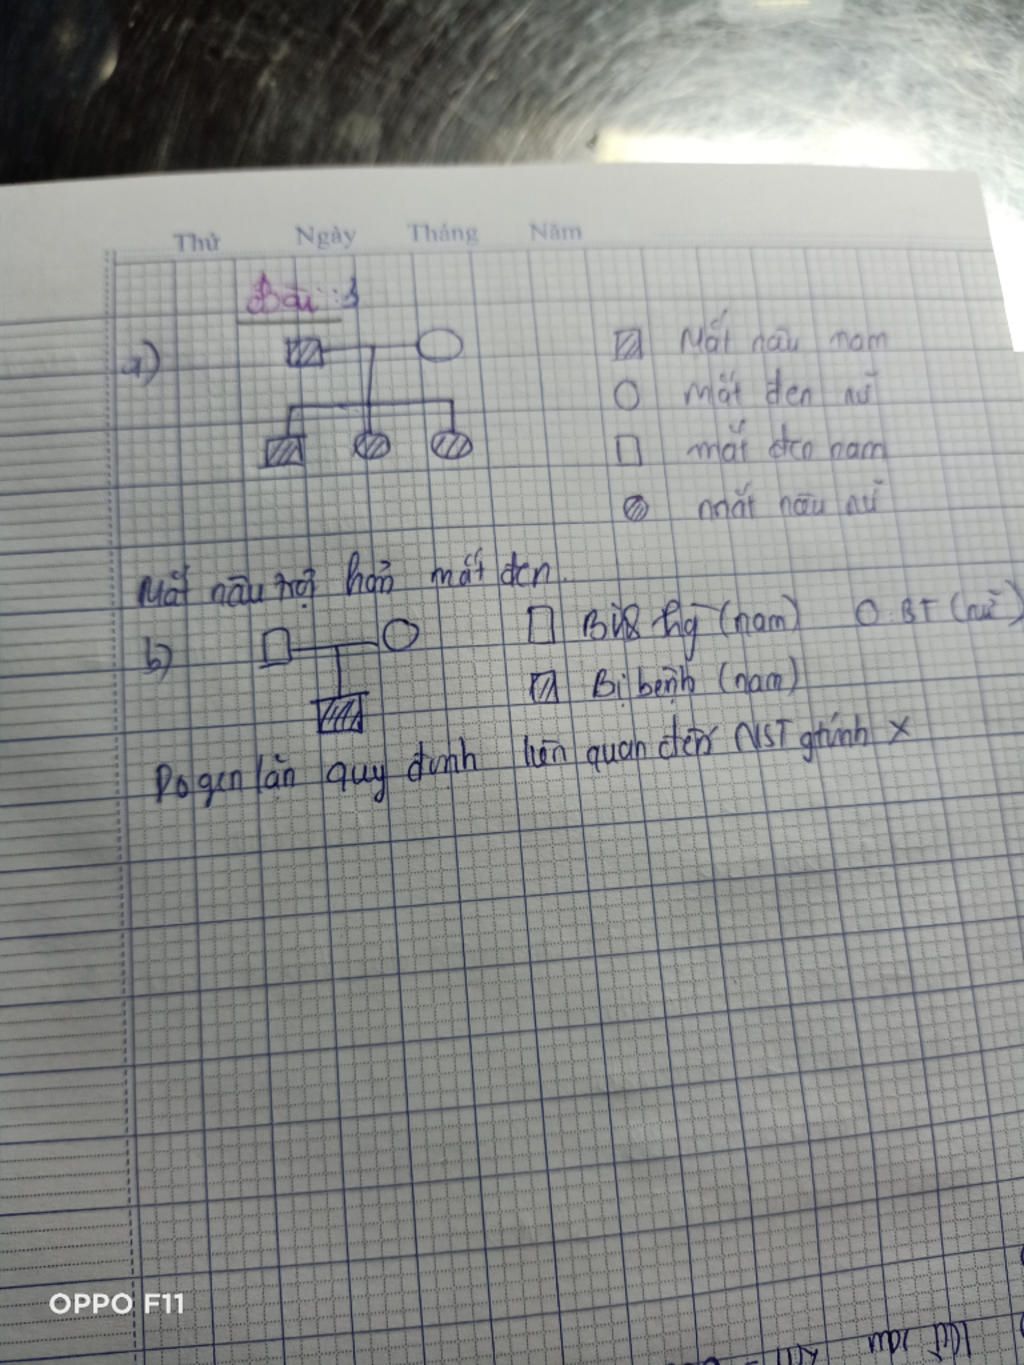 Thứ Ngày Tháng Năm
Bài: 3
a)
Mắt nâu nam
mắt đen nữ
mắt đen nam
mắt nâu nữ
Mắt nâu trội hoàn mắt đen.
b)
(nam) O: BT (nữ)
Bị bệnh (nam)
Do gen lặn quy định liên quan đến NST X
OPPO F11